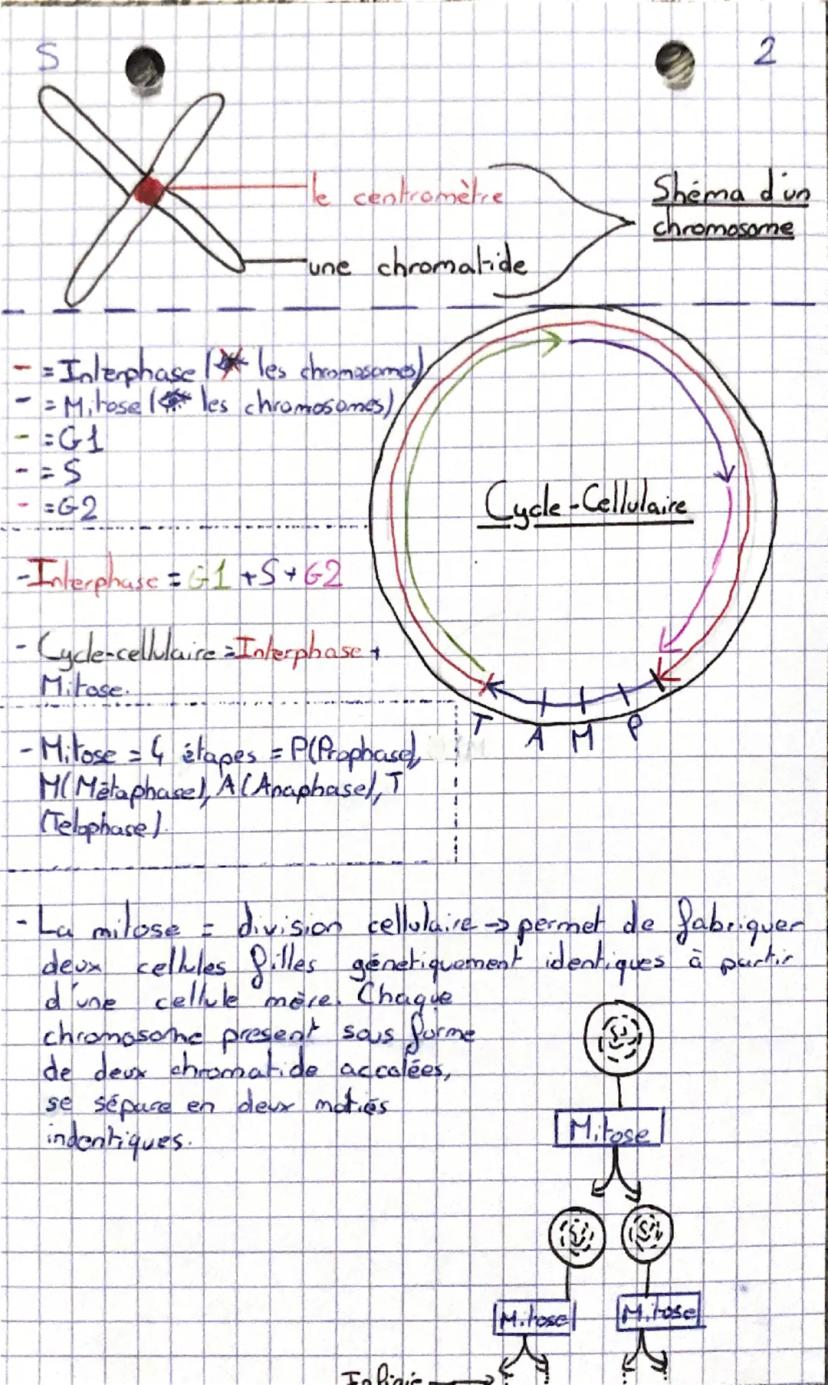 S
2
le centromètre
une chromatide
Shéma d'un
chromosome
- = Interphase ( les chromosomes)
- = Mitose ( les chromosomes)
- = G1
- = S
- = G2
Cycle-Cellulaire
- Interphase = G1 + S + G2
- Cycle-cellulaire = Interphase +
Mitose.
T A M P
- Mitose = 4 étapes = P(Prophase),
M(Métaphase), A(Anaphase), T
(Telophase).
- La mitose = division cellulaire → permet de fabriquer
deux cellules filles génetiquement identiques à partir
d'une cellule mère. Chaque
chromosome present sous forme
de deux chromatide accolées,
se sépare en deux
indentiques.
Mitose
Mitose
Mitose